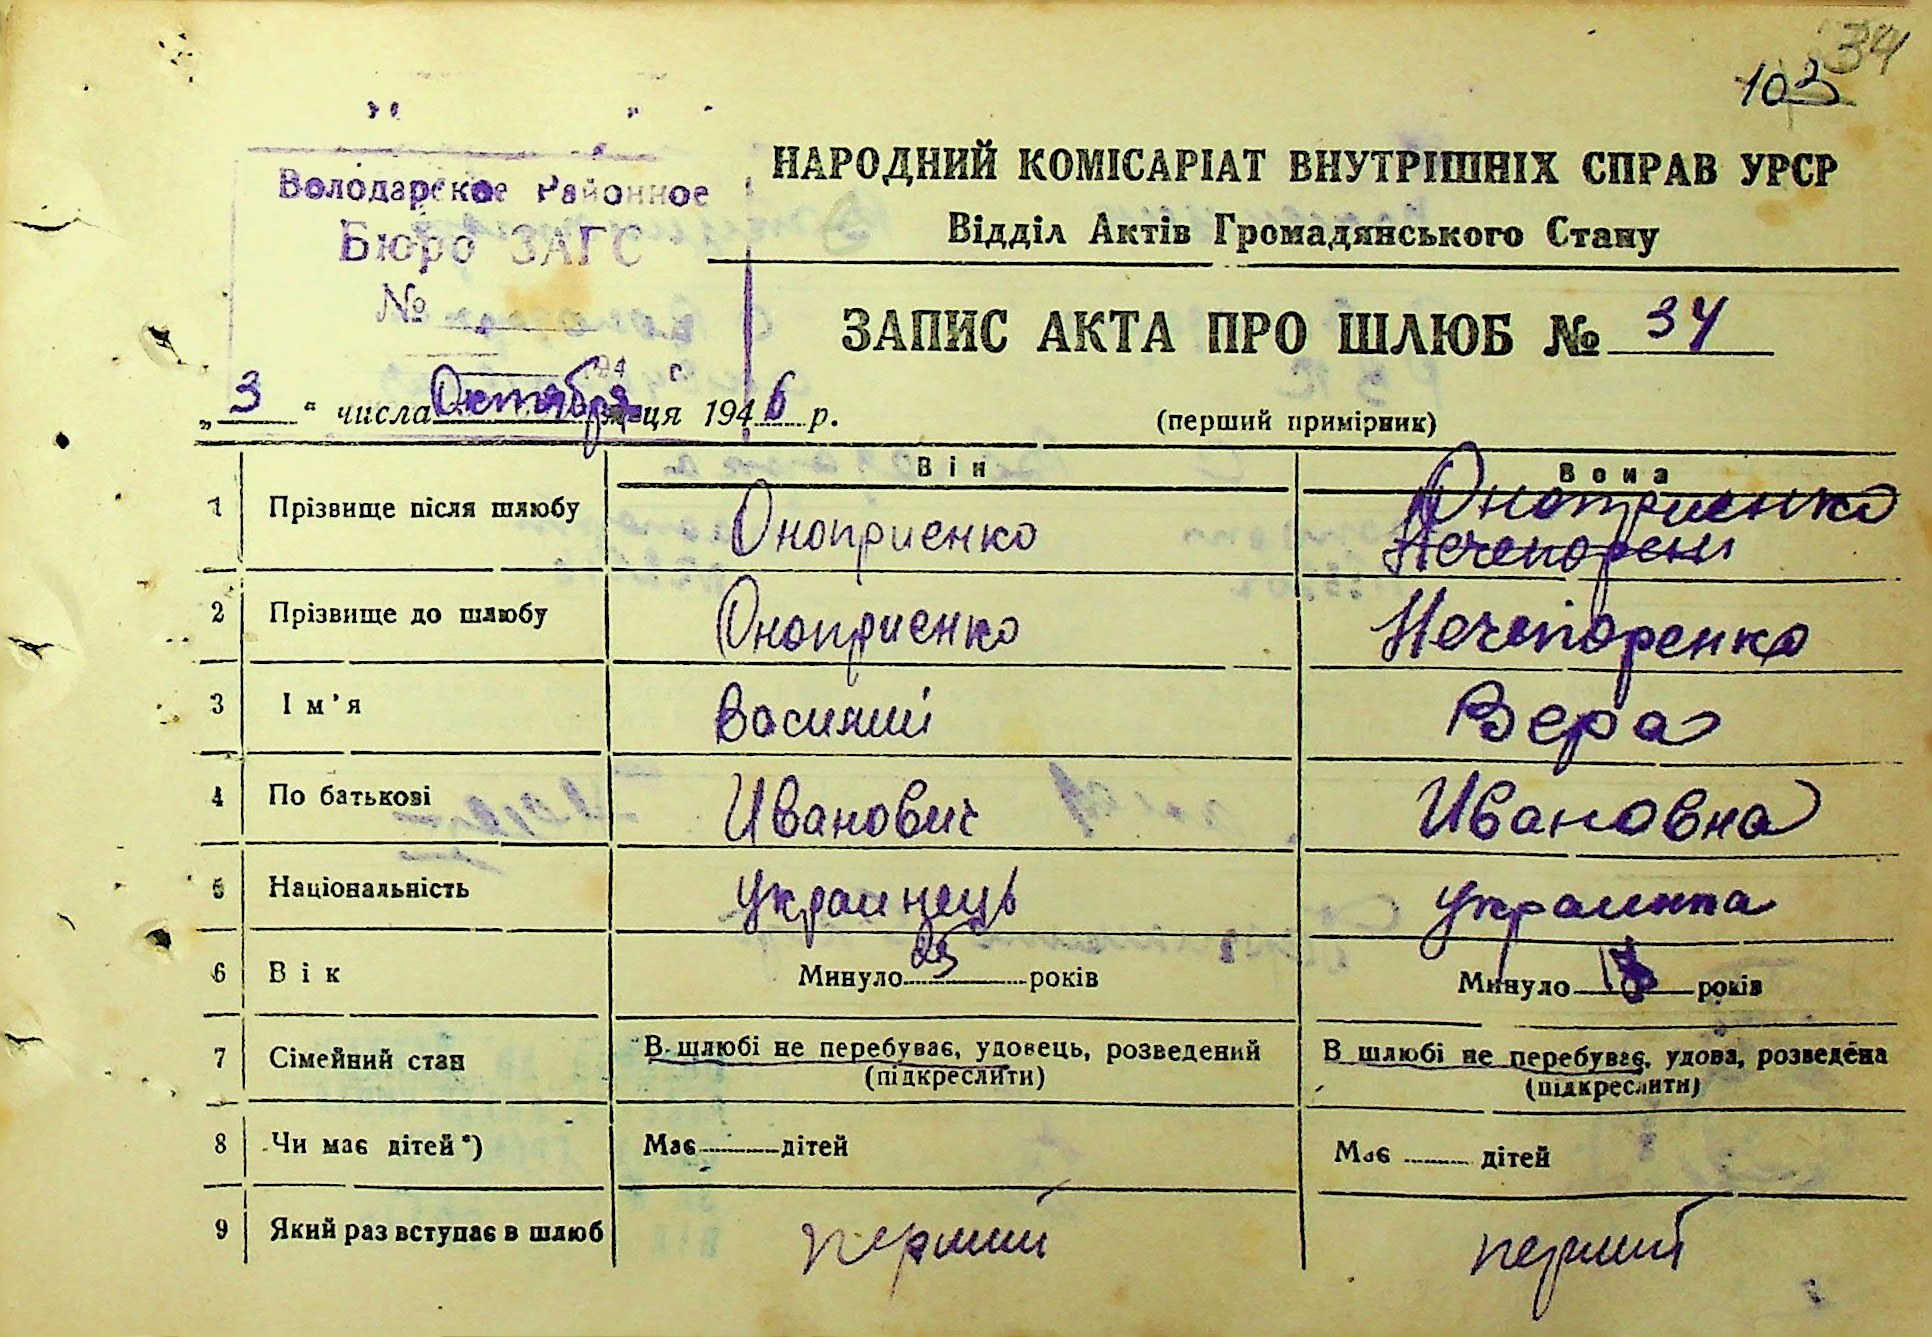 34
103
Володарское Районное
Бюро ЗАГС
№
НАРОДНИЙ КОМІСАРІАТ ВНУТРІШНІХ СПРАВ УРСР
Відділ Актів Громадянського Стану
ЗАПИС АКТА ПРО ШЛЮБ № 34
„ 3 “ числа Октября м-ця 1946 р.
(перший примірник)
Він Вона
1 Прізвище після шлюбу Оноприенко Оноприенко
Нечепорен
2 Прізвище до шлюбу Оноприенко Нечепоренко
3 Ім’я Василий Вера
4 По батькові Иванович Ивановна
5 Національність украинець украинка
6 Вік Минуло 25 років Минуло 18 років
7 Сімейний стан В шлюбі не перебуває, удовець, розведений В шлюбі не перебуває, удова, розведена
(підкреслити) (підкреслити)
8 Чи має дітей*) Має дітей Має дітей
9 Який раз вступає в шлюб перший перший